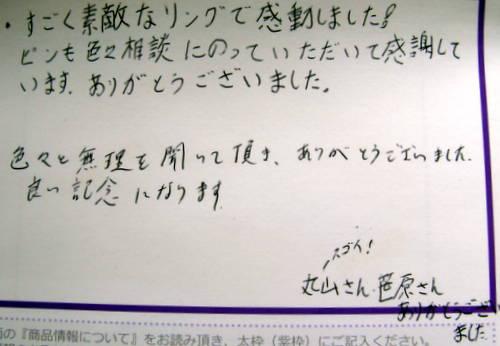 ・すごく素敵なリングで感動しました!
ピンも色々相談にのっていただいて感謝して
います。ありがとうございました。
色々と無理を聞いて頂き、ありがとうございました。
良い記念になります。
スゴイ!
丸山さん・笹原さん
ありがとうござい
ました
面の『商品情報について』をお読み頂き、太枠(紫枠)にご記入ください。